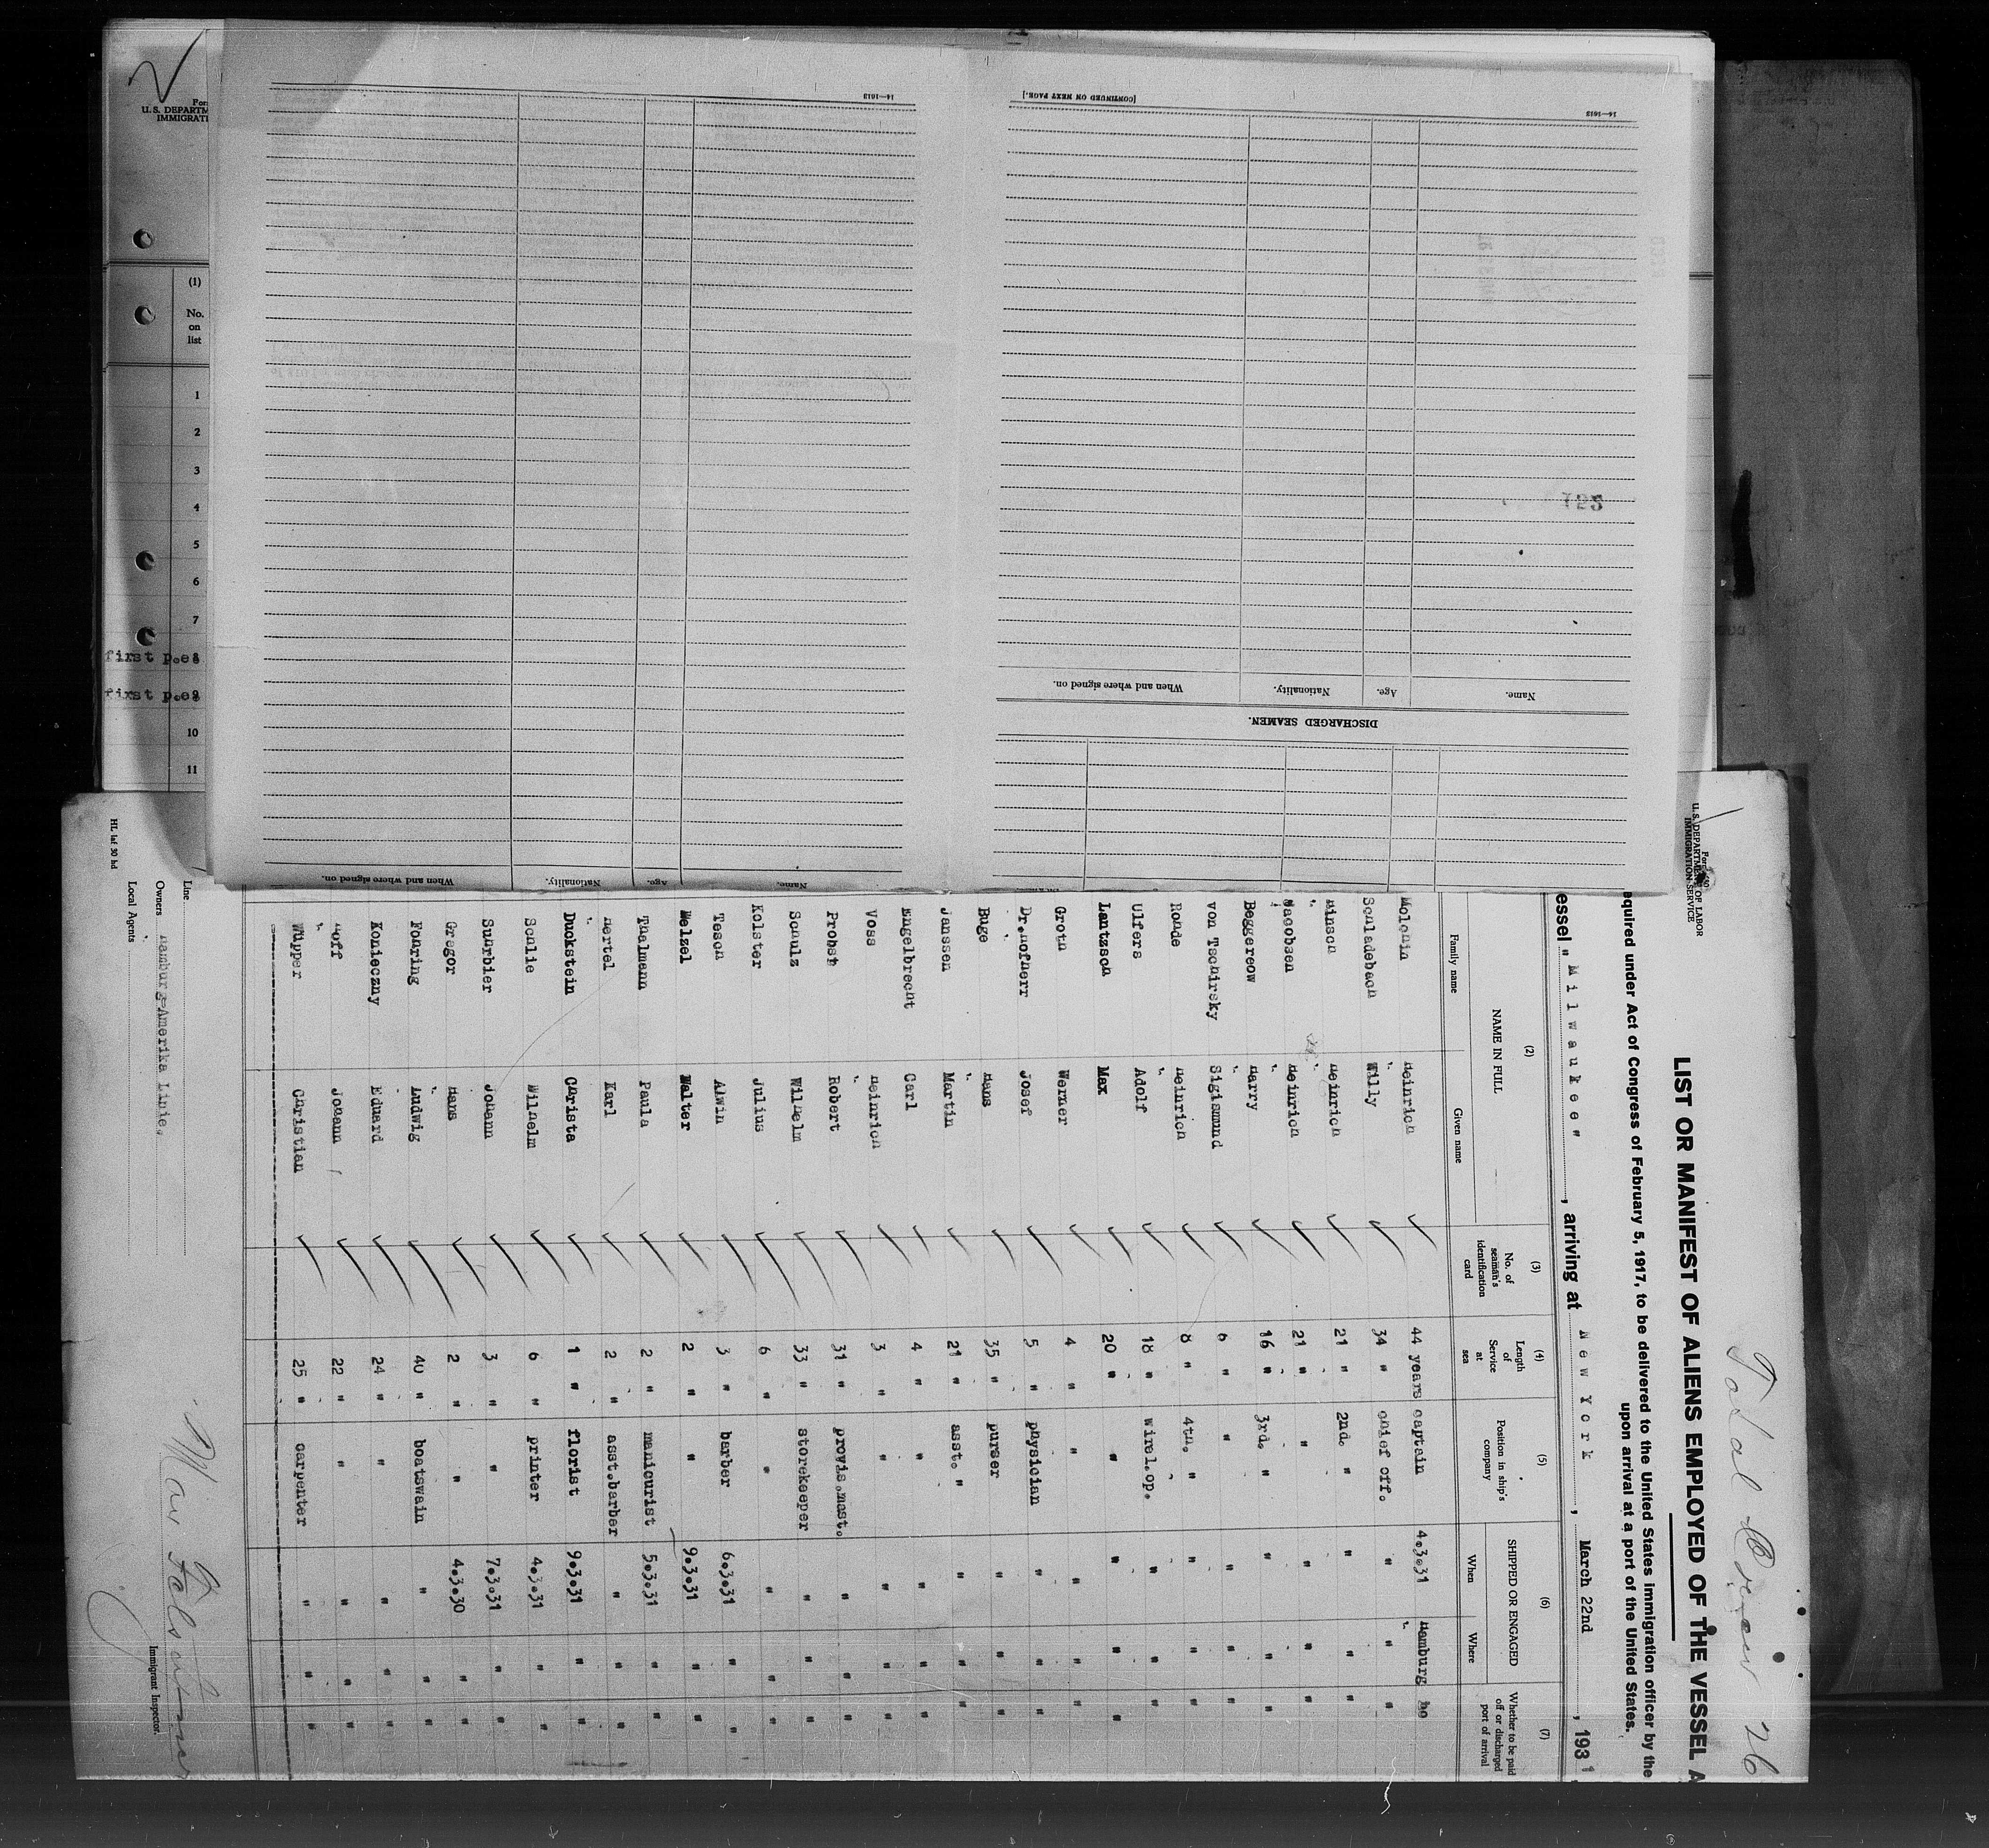 U.S. DEPARTM
IMMIGRATI
(1)
No.
on
list
1
2
3
4
5
6
7
first p.e8
first p.e9
10
11
14—1613
[CONTINUED ON NEXT PAGE.]
14—1613
When and where signed on.
Nationality.
Age.
Name.
DISCHARGED SEAMEN.
When and where signed on.
Nationality.
Age.
Name.
Total Crew 26
U.S. DEPARTMENT OF LABOR
IMMIGRATION SERVICE
LIST OR MANIFEST OF ALIENS EMPLOYED OF THE VESSEL A
equired under Act of Congress of February 5, 1917, to be delivered to the United States immigration officer by the
upon arrival at a port of the United States.
essel "Milwaukee", arriving at New York, March 22nd, 1931
(2) (3) (4) (5) (6) (7)
NAME IN FULL
Family name Given name
No. of seaman's identification card
Length of Service at sea
Position in ship's company
SHIPPED OR ENGAGED
When Where
Whether to be paid off or discharged port of arrival
Heinrich 44 years captain 4.3.31 Hamburg no
Schladebach Willy 34 " chief off. " " "
Minsch Heinrich 21 " 2nd. " " " "
Jacobsen Heinrich 21 " " " " "
Beggereow Harry 16 " 3rd. " " " "
von Tschirsky Sigismund 6 " " " " "
Rohde Heinrich 8 " 4th. " " " "
Ulfers Adolf 18 " wirel.op. " " "
Lantzsch Max 20 " " " " "
Groth Werner 4 " " " " "
Dr.Hofherr Josef 5 " physician " " "
Buge Hans 35 " purser " " "
Janssen Martin 21 " asst. " " " "
Engelbrecht Carl 4 " " " " "
Voss Heinrich 3 " " " "
Probst Robert 31 " provis.mast. " " "
Schulz Wilhelm 33 " storekeeper " " "
Kolster Julius 6 " " " " "
Tesch Alwin 3 " barber 6.3.31 " "
Melzel Walter 2 " " 9.3.31 " "
Thalmann Paula 2 " manicurist 5.3.31 " "
Hertel Karl 2 " asst.barber " " "
Duckstein Christa 1 " florist 9.3.31 " "
Schlie Wilhelm 6 " printer 4.3.31 " "
Suhrbier Johann 3 " " 7.3.31 " "
Gregor Hans 2 " " 4.3.30 " "
Fohring Ludwig 40 " boatswain " " "
Konieczny Eduard 24 " " " " "
Hoff Johann 22 " " " " "
Wüpper Christian 25 " carpenter " " "
Line
Owners Hamburg-Amerika Linie.
Local Agents
HL laf 30 hd
Immigrant Inspector.